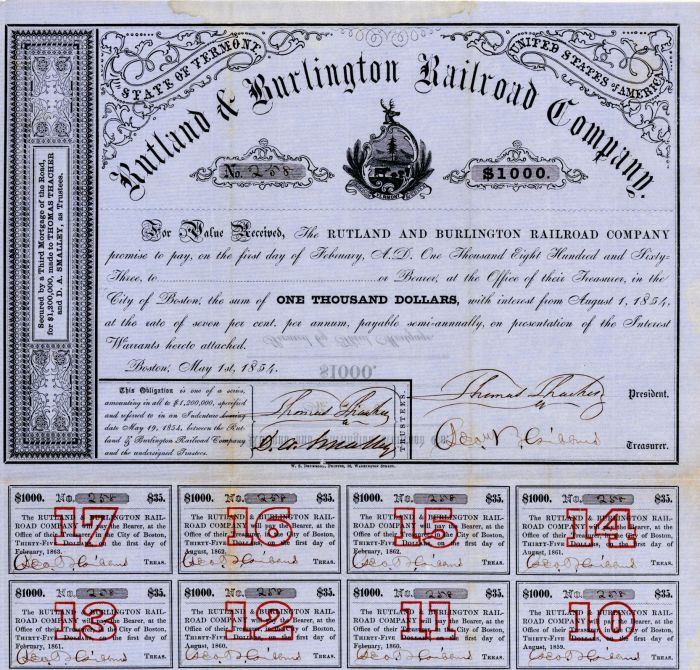 STATE OF VERMONT.
UNITED STATES OF AMERICA
Rutland & Burlington Railroad Company.
No. 258
$1000.
Secured by a Third Mortgage of the Road,
for $1,200,000, made to THOMAS THACHER
and D. A. SMALLEY, as Trustees.
For Value Received, The RUTLAND AND BURLINGTON RAILROAD COMPANY
promise to pay, on the first day of February, A.D. One Thousand Eight Hundred and Sixty-
Three, to or Bearer, at the Office of their Treasurer, in the
City of Boston, the sum of ONE THOUSAND DOLLARS, with interest from August 1, 1854,
at the rate of seven per cent. per annum, payable semi-annually, on presentation of the Interest
Warrants hereto attached.
Boston, May 1st, 1854.
$1000.
This Obligation is one of a series,
amounting in all to $1,200,000, specified
and referred to in an Indenture bearing
date May 19, 1854, between the Rut-
land & Burlington Railroad Company
and the undersigned Trustees.
Thomas Thacher
D. A. Smalley
TRUSTEES.
Thomas Thacher President.
Treasurer.
$1000. No. 258 $35.
17
The RUTLAND & BURLINGTON RAIL-
ROAD COMPANY will pay the Bearer, at the
Office of their Treasurer, in the City of Boston,
THIRTY-FIVE DOLLARS, on the first day of
February, 1863.
TREAS.
$1000. No. 258 $35.
16
The RUTLAND & BURLINGTON RAIL-
ROAD COMPANY will pay the Bearer, at the
Office of their Treasurer, in the City of Boston,
THIRTY-FIVE DOLLARS, on the first day of
August, 1862.
TREAS.
$1000. No. 258 $35.
15
The RUTLAND & BURLINGTON RAIL-
ROAD COMPANY will pay the Bearer, at the
Office of their Treasurer, in the City of Boston,
THIRTY-FIVE DOLLARS, on the first day of
February, 1862.
TREAS.
$1000. No. 258 $35.
14
The RUTLAND & BURLINGTON RAIL-
ROAD COMPANY will pay the Bearer, at the
Office of their Treasurer, in the City of Boston,
THIRTY-FIVE DOLLARS, on the first day of
August, 1861.
TREAS.
$1000. No. 258 $35.
13
The RUTLAND & BURLINGTON RAIL-
ROAD COMPANY will pay the Bearer, at the
Office of their Treasurer, in the City of Boston,
THIRTY-FIVE DOLLARS, on the first day of
February, 1861.
TREAS.
$1000. No. 258 $35.
12
The RUTLAND & BURLINGTON RAIL-
ROAD COMPANY will pay the Bearer, at the
Office of their Treasurer, in the City of Boston,
THIRTY-FIVE DOLLARS, on the first day of
August, 1860.
TREAS.
$1000. No. 258 $35.
11
The RUTLAND & BURLINGTON RAIL-
ROAD COMPANY will pay the Bearer, at the
Office of their Treasurer, in the City of Boston,
THIRTY-FIVE DOLLARS, on the first day of
February, 1860.
TREAS.
$1000. No. 258 $35.
10
The RUTLAND & BURLINGTON RAIL-
ROAD COMPANY will pay the Bearer, at the
Office of their Treasurer, in the City of Boston,
THIRTY-FIVE DOLLARS, on the first day of
August, 1859.
TREAS.